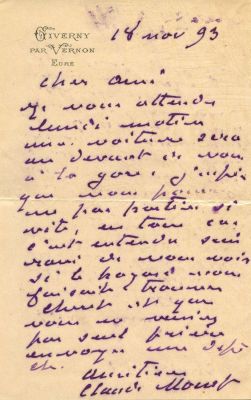 GIVERNY
PAR VERNON
EURE
18 nov 93
cher ami
Je vous attends
lundi matin
une voiture sera
au devant de vous
à la gare j'espère
que vous
ne pas partir si
vite, en tous cas
c'est entendu suis
ravi de vous voir
si le hasard vous
faisait trouver
et que
vous ne veniez
pas seul prière
envoyer une dépê
che.
amitiés
Claude Monet